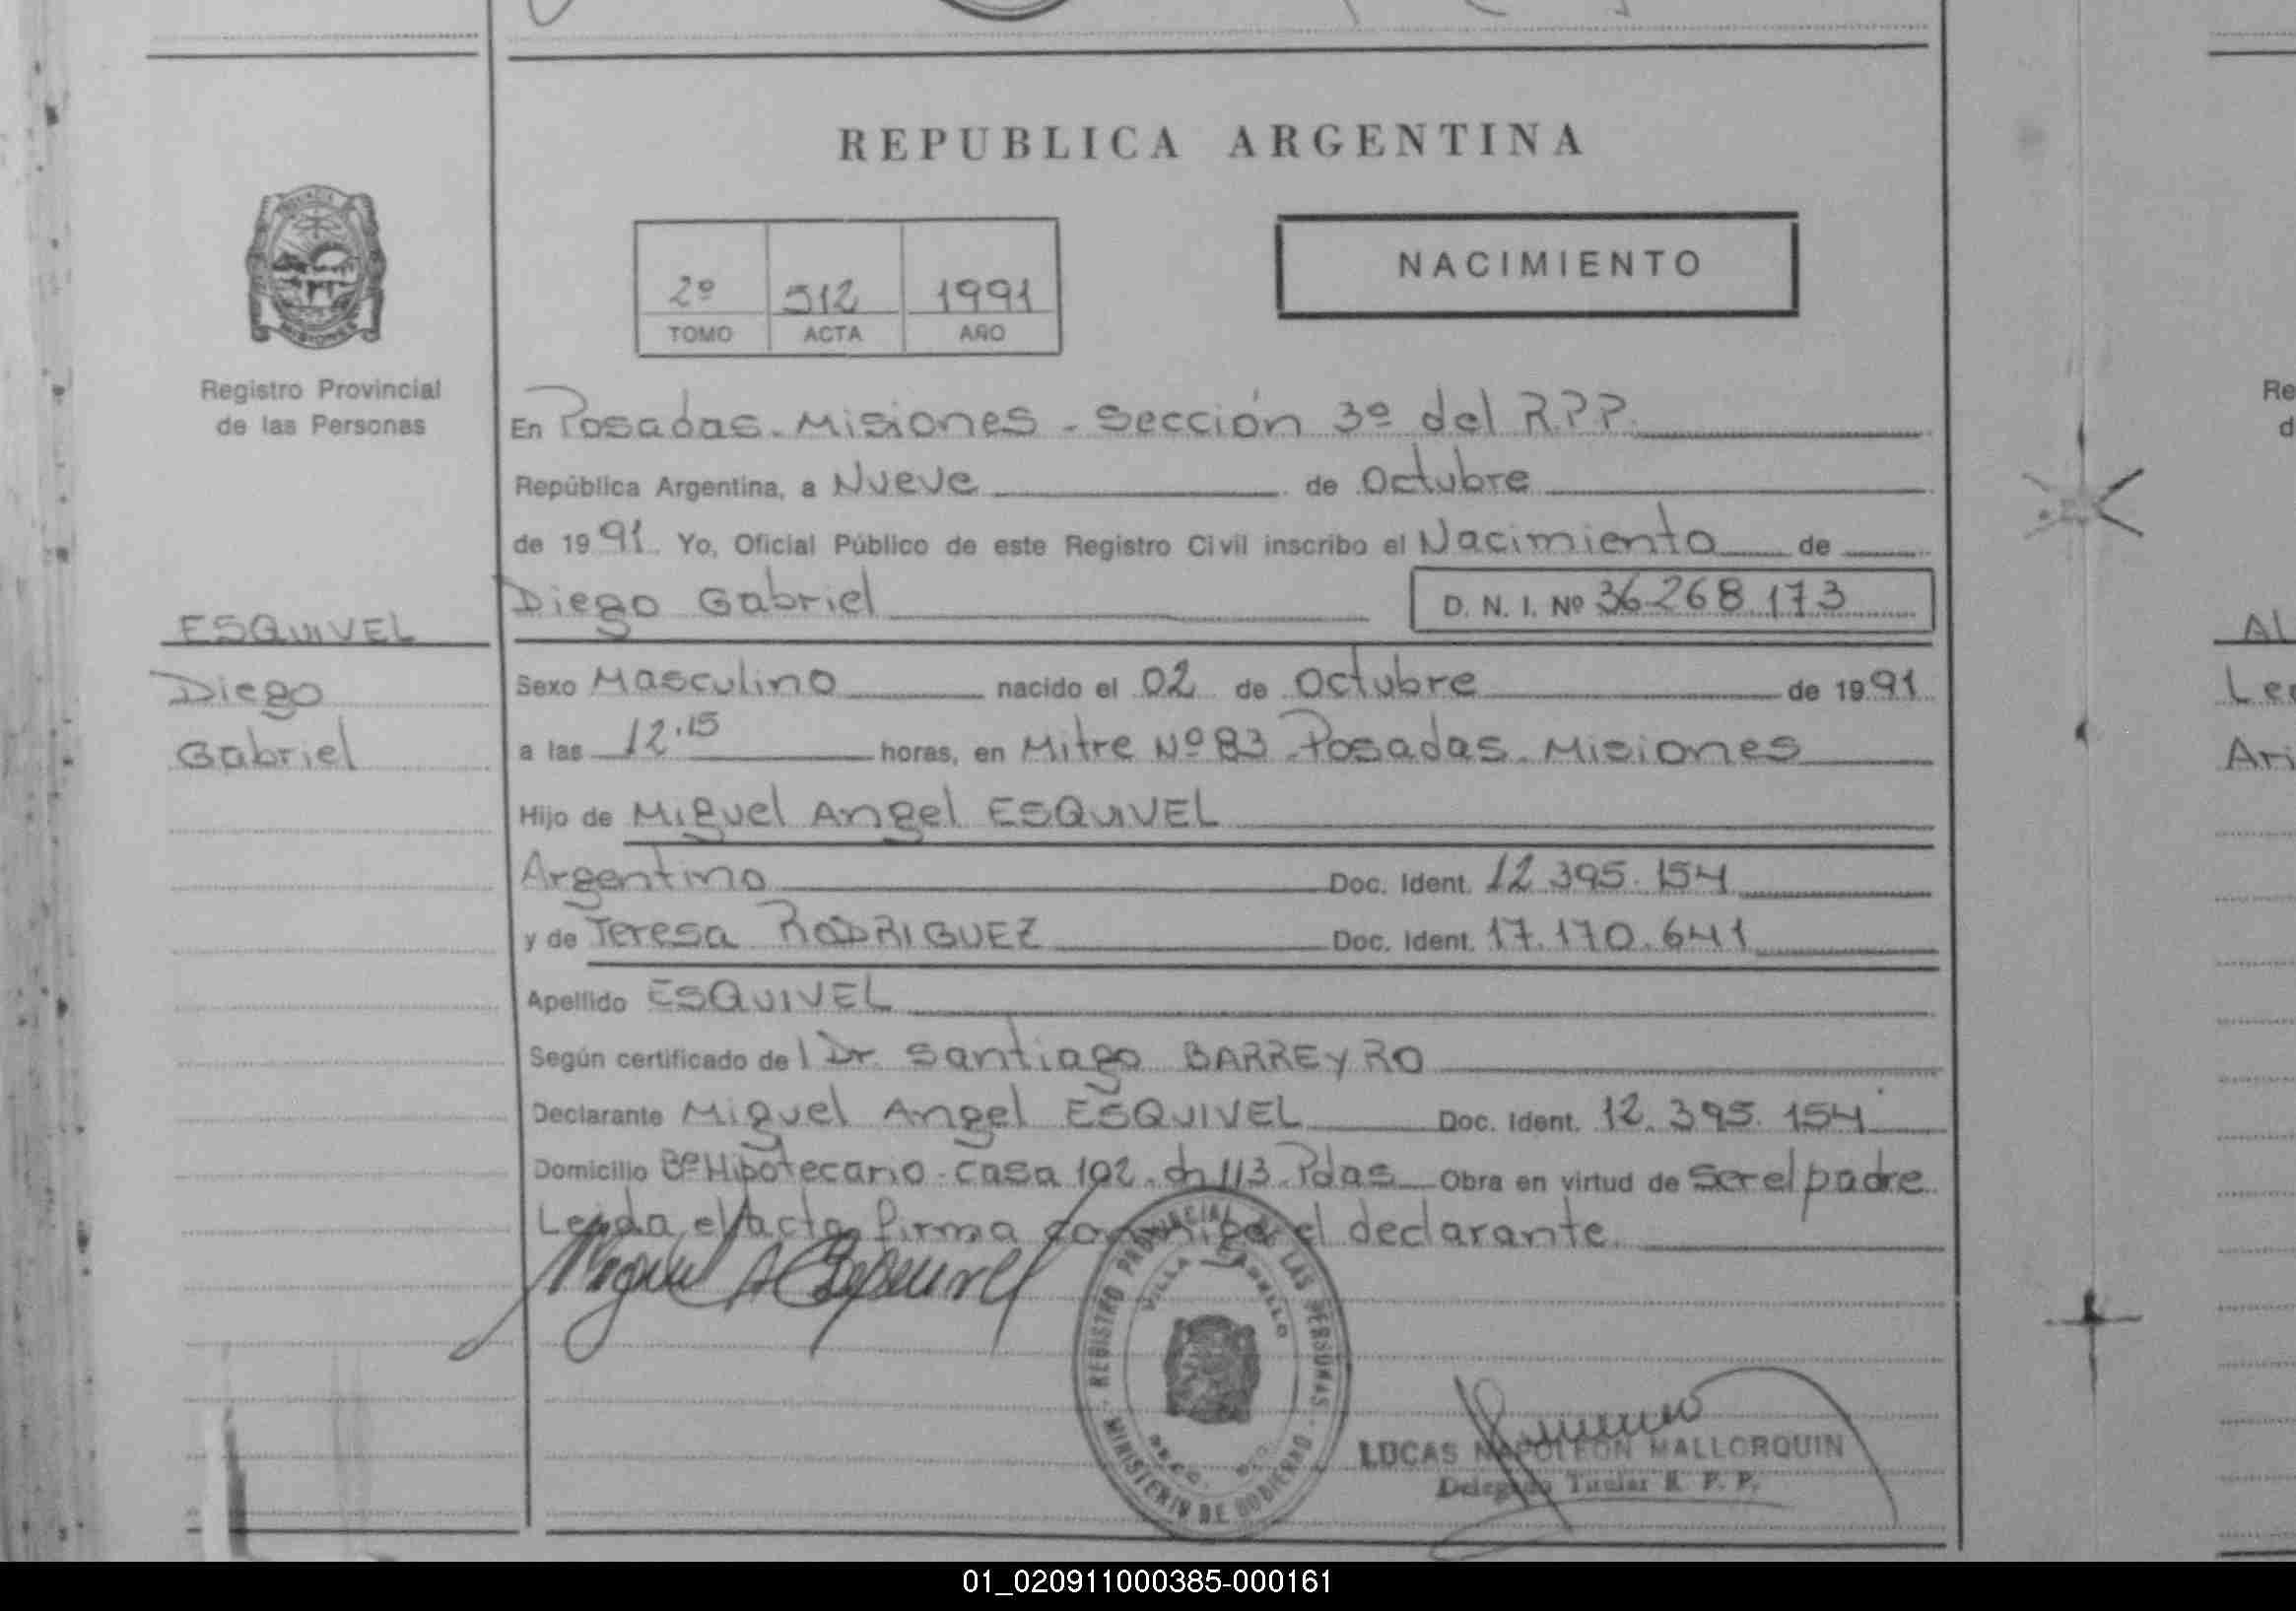 REPUBLICA ARGENTINA
NACIMIENTO
2º 512 1991
TOMO ACTA AÑO
MISIONES
Registro Provincial
de las Personas
En Posadas. Misiones - Sección 3º del R.P.P.
República Argentina, a Nueve de Octubre
de 1991. Yo, Oficial Público de este Registro Civil inscribo el Nacimiento de
Diego Gabriel D. N. I. Nº 36.268.173
ESQUIVEL
Diego
Gabriel
Sexo Masculino nacido el 02 de Octubre de 1991
a las 12.15 horas, en Mitre Nº 83 - Posadas. Misiones
Hijo de Miguel Angel ESQUIVEL
Argentino Doc. Ident. 12.395.154
y de Teresa RODRIGUEZ Doc. Ident. 17.170.641
Apellido ESQUIVEL
Según certificado del Dr. Santiago BARREYRO
Declarante Miguel Angel ESQUIVEL Doc. Ident. 12.395.154
Domicilio Bº Hipotecario - casa 102. ch 113. Pdas Obra en virtud de ser el padre
Leida el acta firma conmigo el declarante.
REGISTRO PROVINCIAL DE LAS PERSONAS
VILLA
MINISTERIO DE GOBIERNO
LUCAS NAPOLEON MALLORQUIN
Delegado Titular R. P. P.
Re
d
AL
Le
Ari
01_020911000385-000161